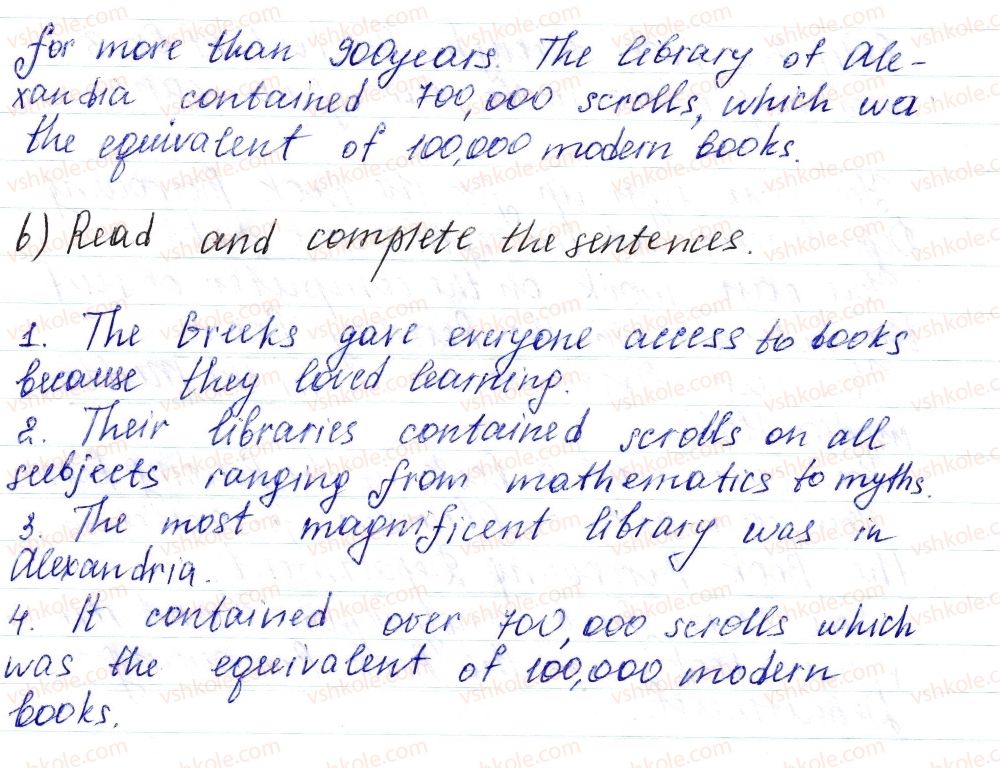 for more than 900 years. The library of Ale-
xandria contained 700,000 scrolls, which wa
the equivalent of 100,000 modern books.
b) Read and complete the sentences.
1. The Greeks gave everyone access to books
because they loved learning.
2. Their libraries contained scrolls on all
subjects ranging from mathematics to myths.
3. The most magnificent library was in
Alexandria.
4. It contained over 700,000 scrolls which
was the equivalent of 100,000 modern
books.